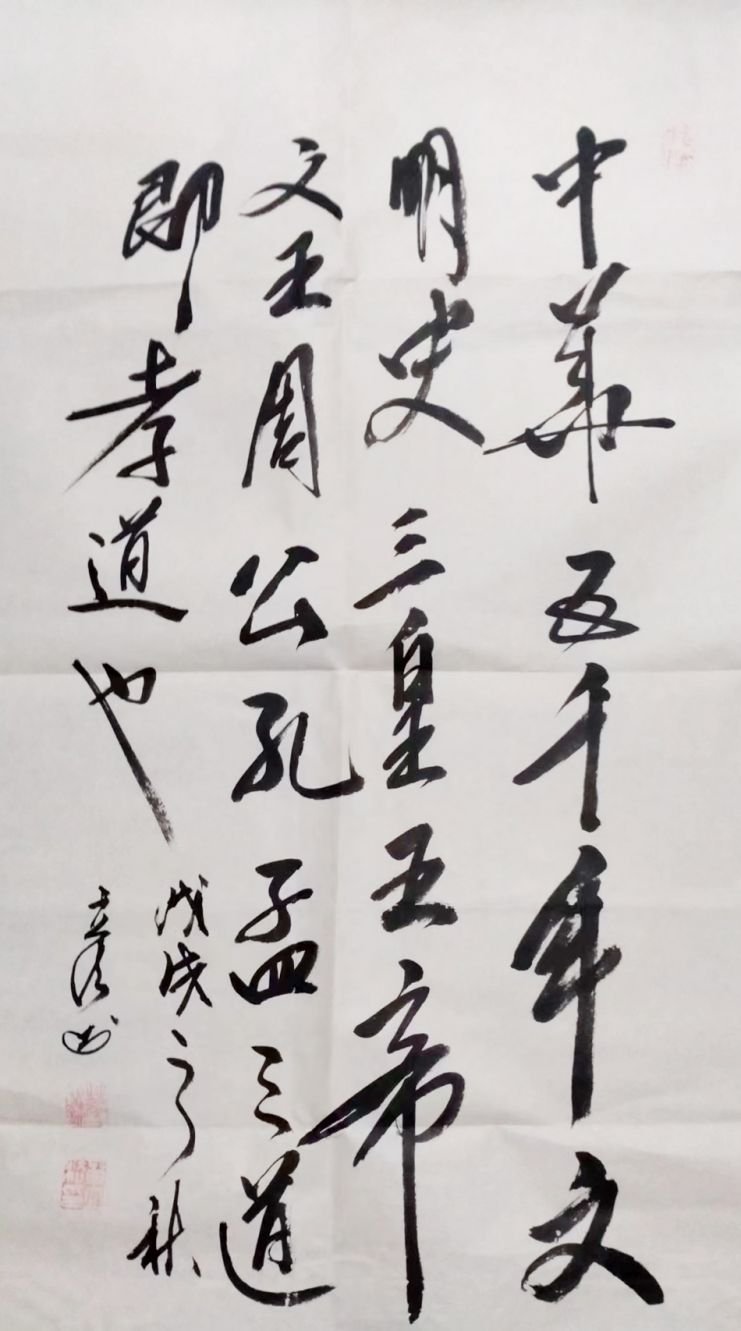 中華五千年文
明史三皇五帝
文王周公孔孟之道
即孝道也
戊戌之秋
书